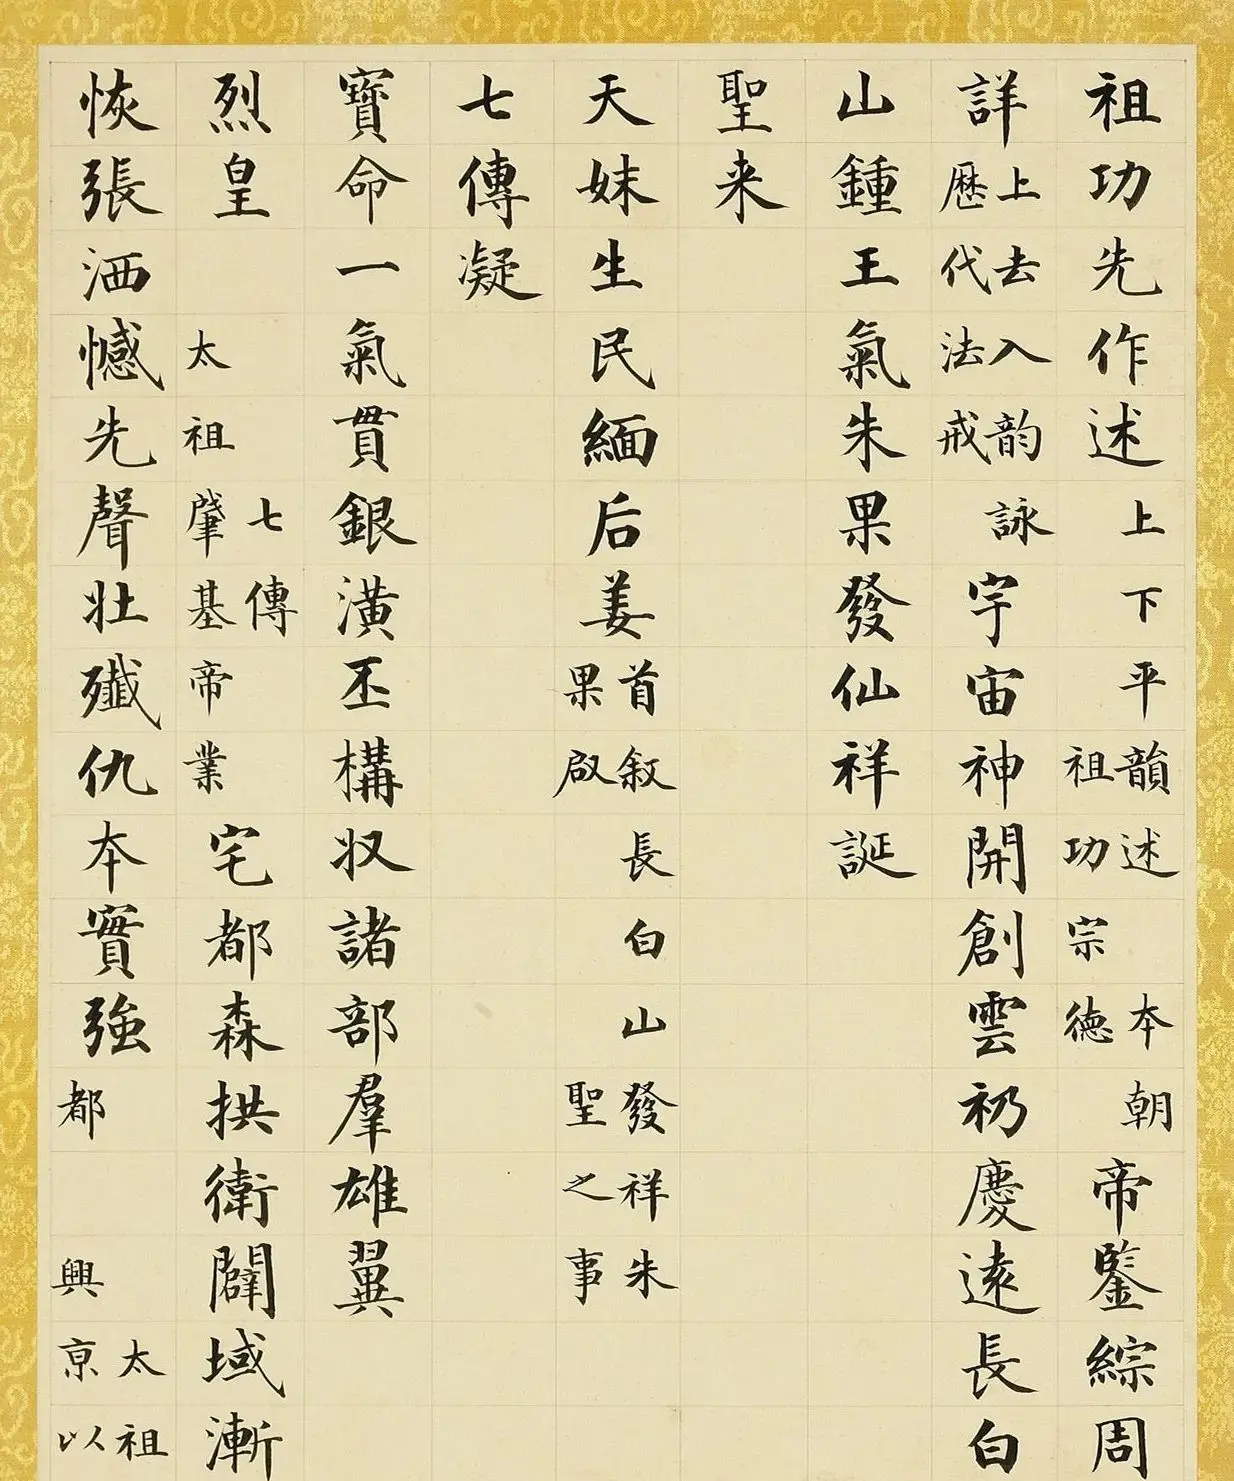 祖功先作述上下平韻述本朝祖功宗德帝鑒綜周
詳上去入韵詠歷代法戒宇宙神開創雲礽慶遠長白
山鍾王氣朱果發仙祥誕
聖来
天妹生民緬后姜首敘長白山發祥朱果啟聖之事
七傳凝
寶命一氣貫銀潢丕構収諸部羣雄翼
烈皇七傳太祖肇基帝業宅都森拱衛闢域漸
恢張洒憾先聲壯殲仇本實強太祖都興京以